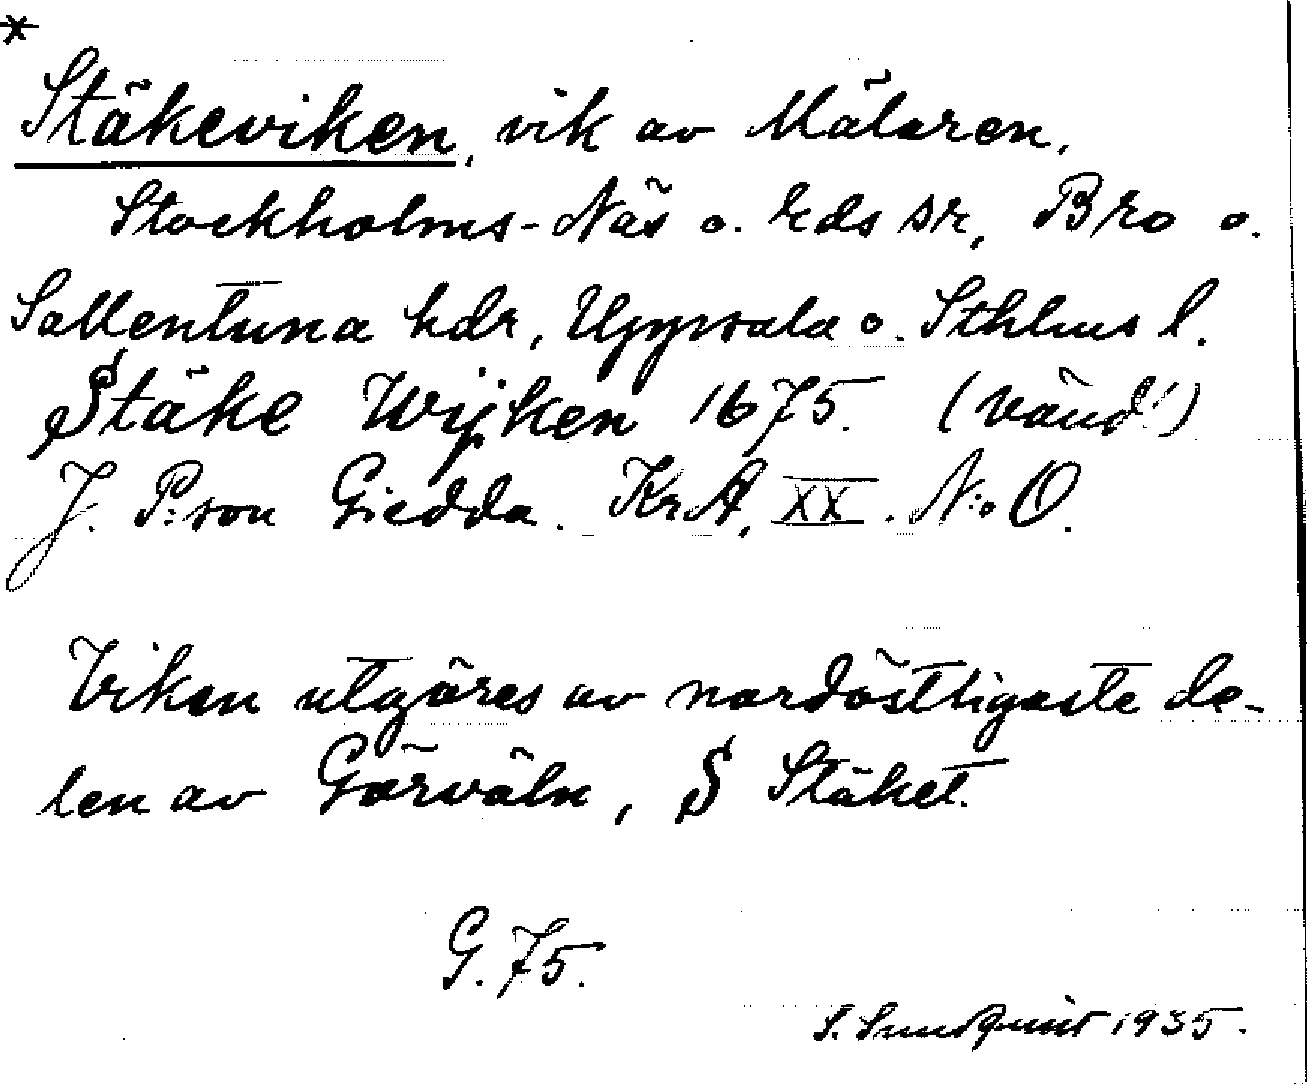 *
Stäkeviken, vik av Mälaren,
Stockholms-Näs o. Eds sr, Bro o.
Sollentuna hdr, Uppsala o. Sthlms l.
Stäke Wijken 1675. (vänd!)
J. P:son Giedda. KrA, XX. N:o O.
Viken utgöres av nordöstligaste de-
len av Görväln, S Stäket.
G. 75.
S. Sundquist 1935.